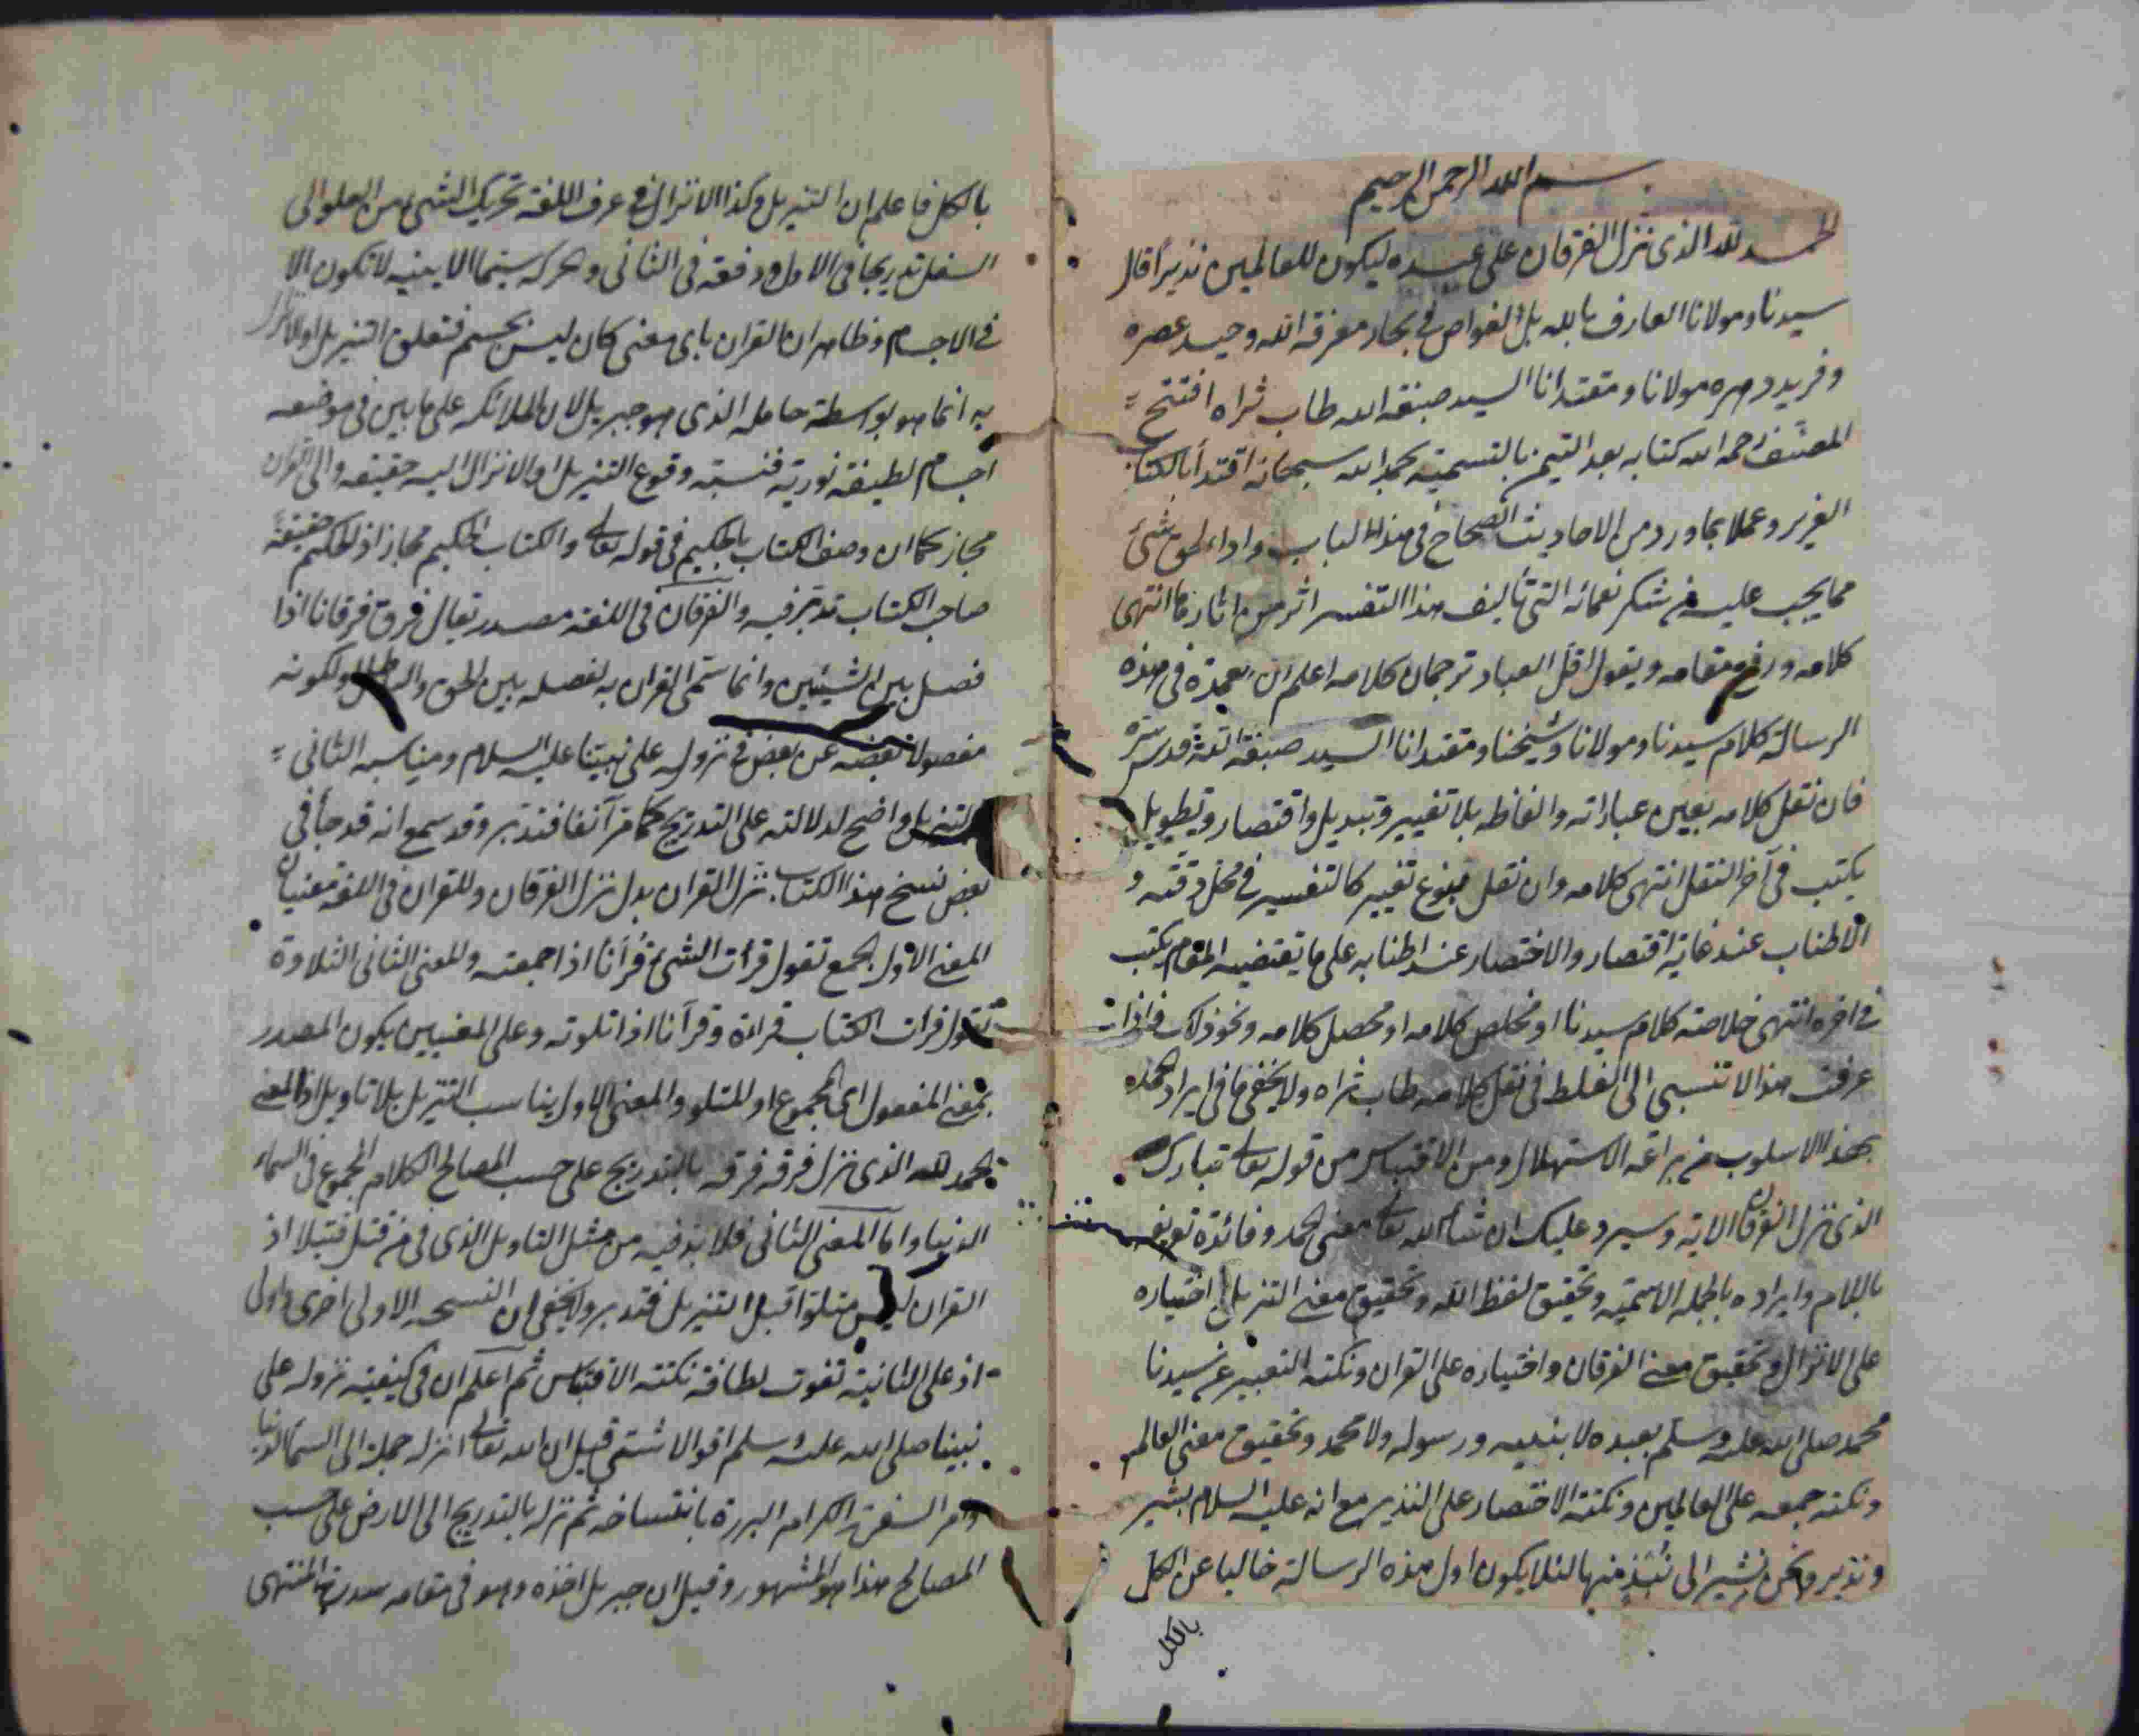 بسم الله الرحمن الرحيم
الحمد لله الذى نزل الفرقان على عبده ليكون للعالمين نذيرا قال
سيدنا ومولانا العارف بالله بل الغواص فى بحار معرفة الله وحيد عصره
وفريد دهره مولانا ومقتدانا السيد صبغة الله طاب ثراه افتتح
المصنف رحمه الله كتابه بعد التيمن بالتسمية بحمد الله سبحانه اقتدأ بالكتاب
العزيز وعملا بما ورد من الاحاديث الصحاح فى هذا الباب واداء لحق شئ
مما يجب عليه من شكر نعمائه التى تأليف هذا التفسير اثر من اثارها انتهى
كلامه ورفع مقامه ويقول اقل العباد ترجمان كلامه اعلم ان العمدة فى هذه
الرسالة كلام سيدنا ومولانا وشيخنا ومقتدانا السيد صبغة الله قدس سره
فان نقل كلامه بعين عباراته والفاظه بلا تغيير وتبديل واقتصار وتطويل
يكتب فى آخر النقل انتهى كلامه وان نقل بنوع تغيير كالتفسير فى محل دقته و
الاطناب عند غاية اقتصار والاختصار عند اطنابه على ما يقتضيه المقام يكتب
فى اخره انتهى خلاصة كلام سيدنا او مخلص كلامه او محصل كلامه ونحو ذلك فاذا
عرفت هذا لا تنسبى الى الغلط فى نقل كلامه طاب ثراه ولا يخفى ما فى ايراد الحمد
بهذا الاسلوب من براعة الاستهلال ومن الاقتباس من قوله تعالى تبارك
الذى نزل الفرقان الاية وسيرد عليك ان شاء الله تعالى معنى الحمد وفائدة تعريفه
باللام وايراده بالجملة الاسمية وتحقيق لفظ الله وتحقيق معنى التنزيل واختياره
على الانزال وتحقيق معنى الفرقان واختياره على القران ونكتة التعبير عن سيدنا
محمد صلى الله عليه وسلم بعبده لا بنبيه ورسوله ولا محمد وتحقيق معنى العالم
ونكتة جمعه على العالمين ونكتة الاختصار على النذير مع انه عليه السلام بشير
ونذير ونحن نشير الى نبذ منها لئلا يكون اول هذه الرسالة خاليا عن الكل
بالكل
بالكل فاعلم ان التنزيل وكذا الانزال فى عرف اللغة تحريك الشئ من العلو الى
السفل تدريجا فى الاول ودفعة فى الثانى والحركة سيما الاينيه لا تكون الا
فى الاجسام وظاهر ان القران باى معنى كان ليس بجسم فتعلق التنزيل او الانزال
به انما هو بواسطة حامله الذى هو جبريل لان الملائكة على ما بين فى موضعه
اجسام لطيفة نورية فنسبة وقوع التنزيل او الانزال اليه حقيقة والى القران
مجاز كما ان وصف الكتاب بالحكيم فى قوله تعالى والكتاب الحكيم مجاز اذ الحكيم حقيقة
صاحب الكتاب تدبر فيه والفرقان فى اللغة مصدر يقال فرق فرقانا اذا
فصل بين الشيئين وانما سمى القران به لفصله بين الحق والباطل او لكونه
مفصولا بعضه عن بعض فى نزوله على نبينا عليه السلام ومناسبة الثانى
بالتنزيل واضح لدلالته على التدريج كما مر آنفا فتدبر وقد سمع انه قد جأ فى
بعض نسخ هذا الكتاب نزل القران بدل نزل الفرقان وللقران فى اللغة معنيان
المعنى الاول الجمع تقول قرأت الشئ قرأنا اذا جمعته والمعنى الثانى التلاوة
تقول قرات الكتاب قراءة وقرآنا اذا تلوته وعلى المعنيين يكون المصدر
بمعنى المفعول اى المجموع او المتلو والمعنى الاول يناسب التنزيل بلا تاويل اذ المعنى
الحمد لله الذى نزل فرقة فرقة بالتدريج على حسب المصالح الكلام المجموع فى السماء
الدنيا واما المعنى الثانى فلا بد فيه من مثل التاويل الذى فى من قتل قتيلا اذ
القران ليس متلوا قبل التنزيل فتدبر ولا يخفى ان النسخة الاولى احرى واولى
اذ على الثانية تفوت لطافة نكتة الاقتباس ثم اعلم ان فى كيفية نزوله على
نبينا صلى الله عليه وسلم اقوالا شتى قيل ان الله تعالى انزله جملة الى السماء الدنيا
وامر السفرة الكرام البررة بانتساخه ثم نزله بالتدريج الى الارض على حسب
المصالح هذا هو المشهور وقيل ان جبريل اخذه وهو فى مقامه سدرة المنتهى